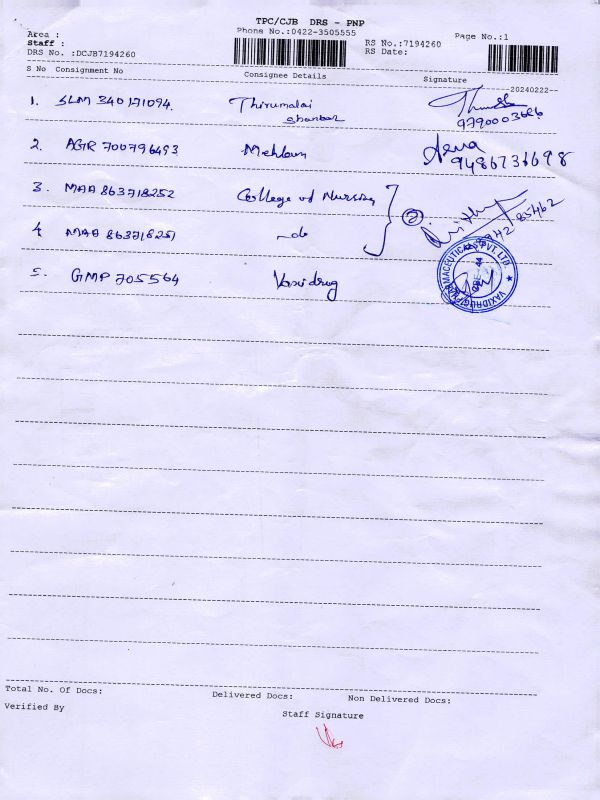 TPC/CJB DRS - PNP
Area :
Phone No.:0422-3505555
Page No.:1
Staff :
RS No.:7194260
DRS No. :DCJB7194260
RS Date:
S No Consignment No Consignee Details Signature
--20240222--
1. SLM 340171094. Thirumalai
9790003686
2. AGR 700796493
9486736698
3. MAA 863718252 College of Nursing
2
4 MAA 863718251 -do
5. GMP 705564 Vaxidrug
VAXIDRUG PHARMACEUTICALS PVT LTD.
Total No. Of Docs: Delivered Docs: Non Delivered Docs:
Verified By
Staff Signature